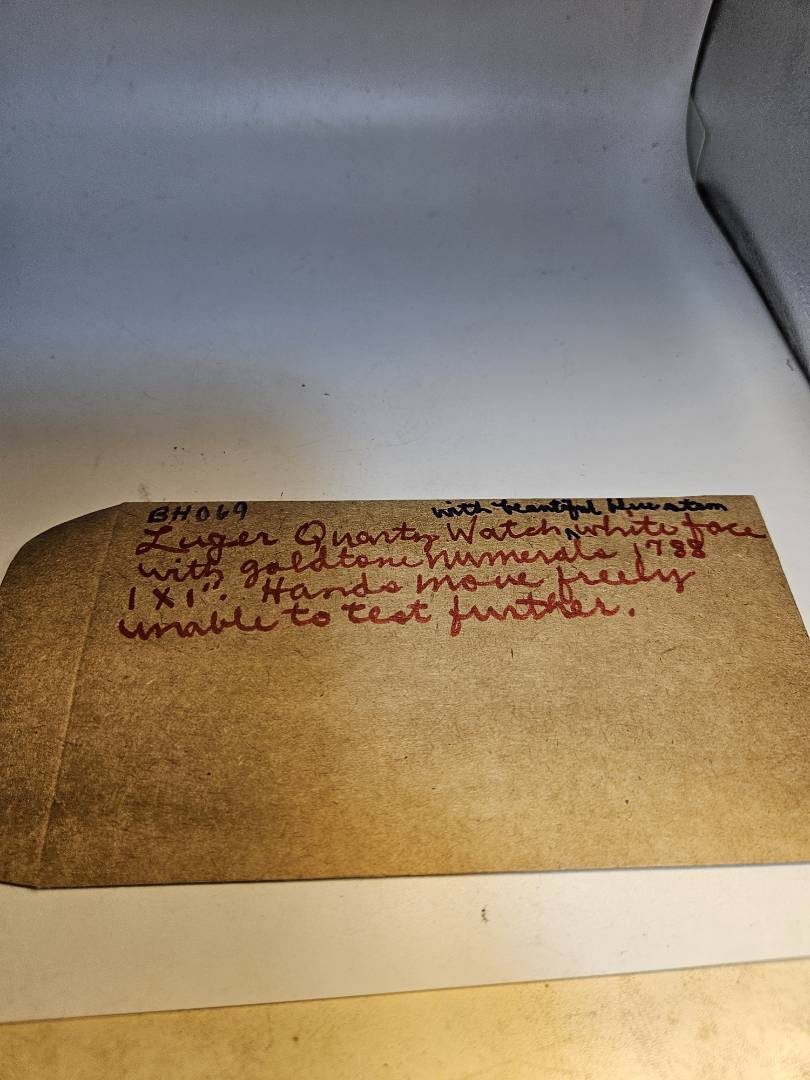 BH069
with beautiful blue stem
Luger Quartz Watch, ^ white face
with goldtone numerals, 1788
1 X 1". Hands move freely
unable to test further.